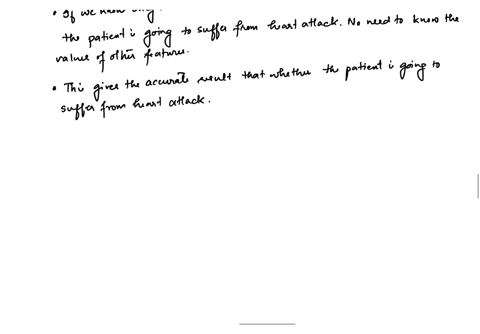 • If we know only
the patient is going to suffer from heart attack. No need to know the
values of other features.
• This gives the accurate result that whether the patient is going to
suffer from heart attack.